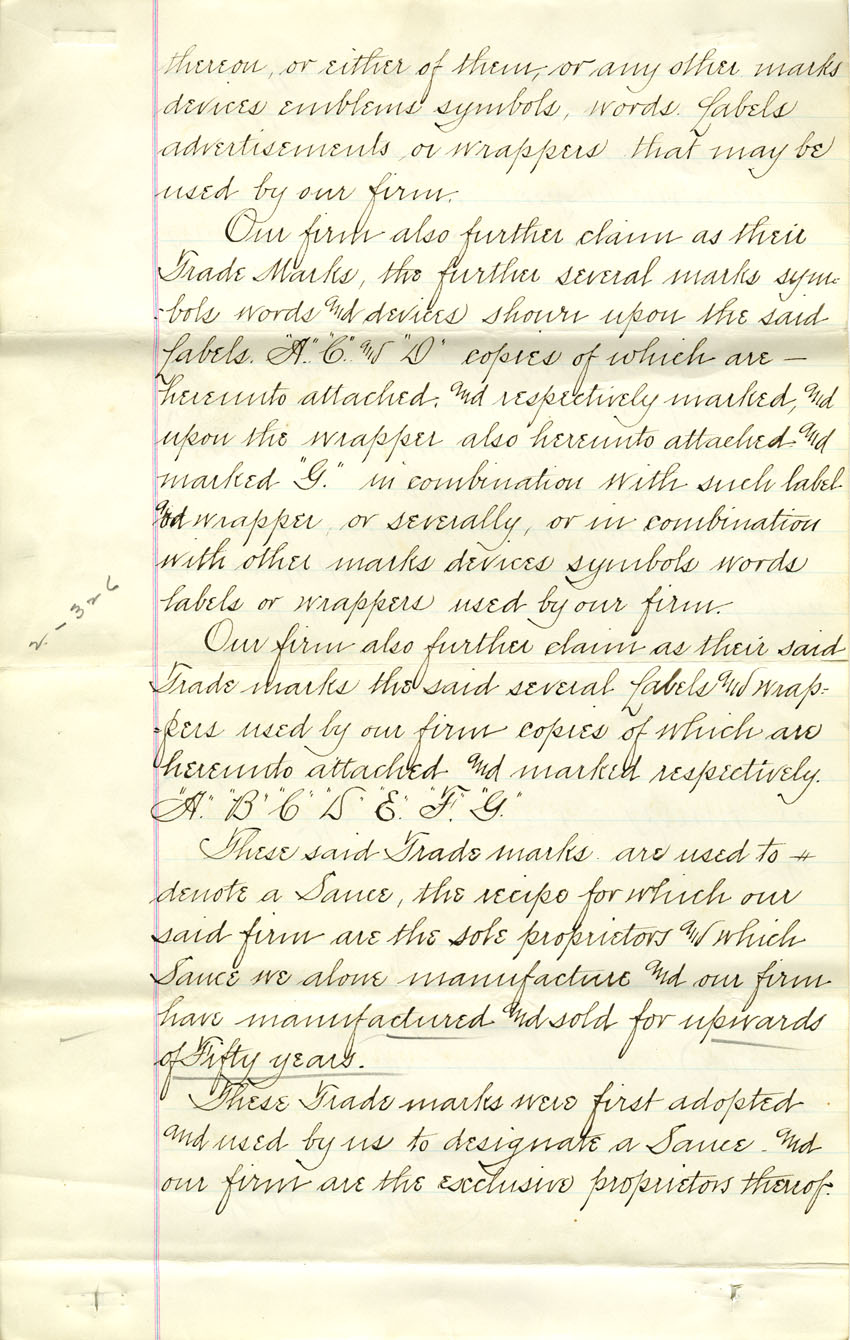 thereon, or either of them, or any other marks
devices emblems symbols, words. Labels
advertisements or wrappers that may be
used by our firm.
Our firm also further claim as their
Trade Marks, the further several marks sym-
-bols words and devices shown upon the said
Labels. "A." "C." and "D" copies of which are —
hereunto attached, and respectively marked, and
upon the wrapper also hereunto attached and
marked "G." in combination with such label
and wrapper, or severally, or in combination
with other marks devices symbols words
labels or wrappers used by our firm.
2-326
Our firm also further claim as their said
Trade marks the said several Labels and wrap-
-pers used by our firm copies of which are
hereunto attached and marked respectively.
"A." "B" "C" "D" "E." "F." "G."
These said Trade marks are used to
denote a Sauce, the recipe for which our
said firm are the sole proprietors and which
Sauce we alone manufacture and our firm
have manufactured and sold for upwards
of Fifty years.
These Trade marks were first adopted
and used by us to designate a Sauce. and
our firm are the exclusive proprietors thereof.